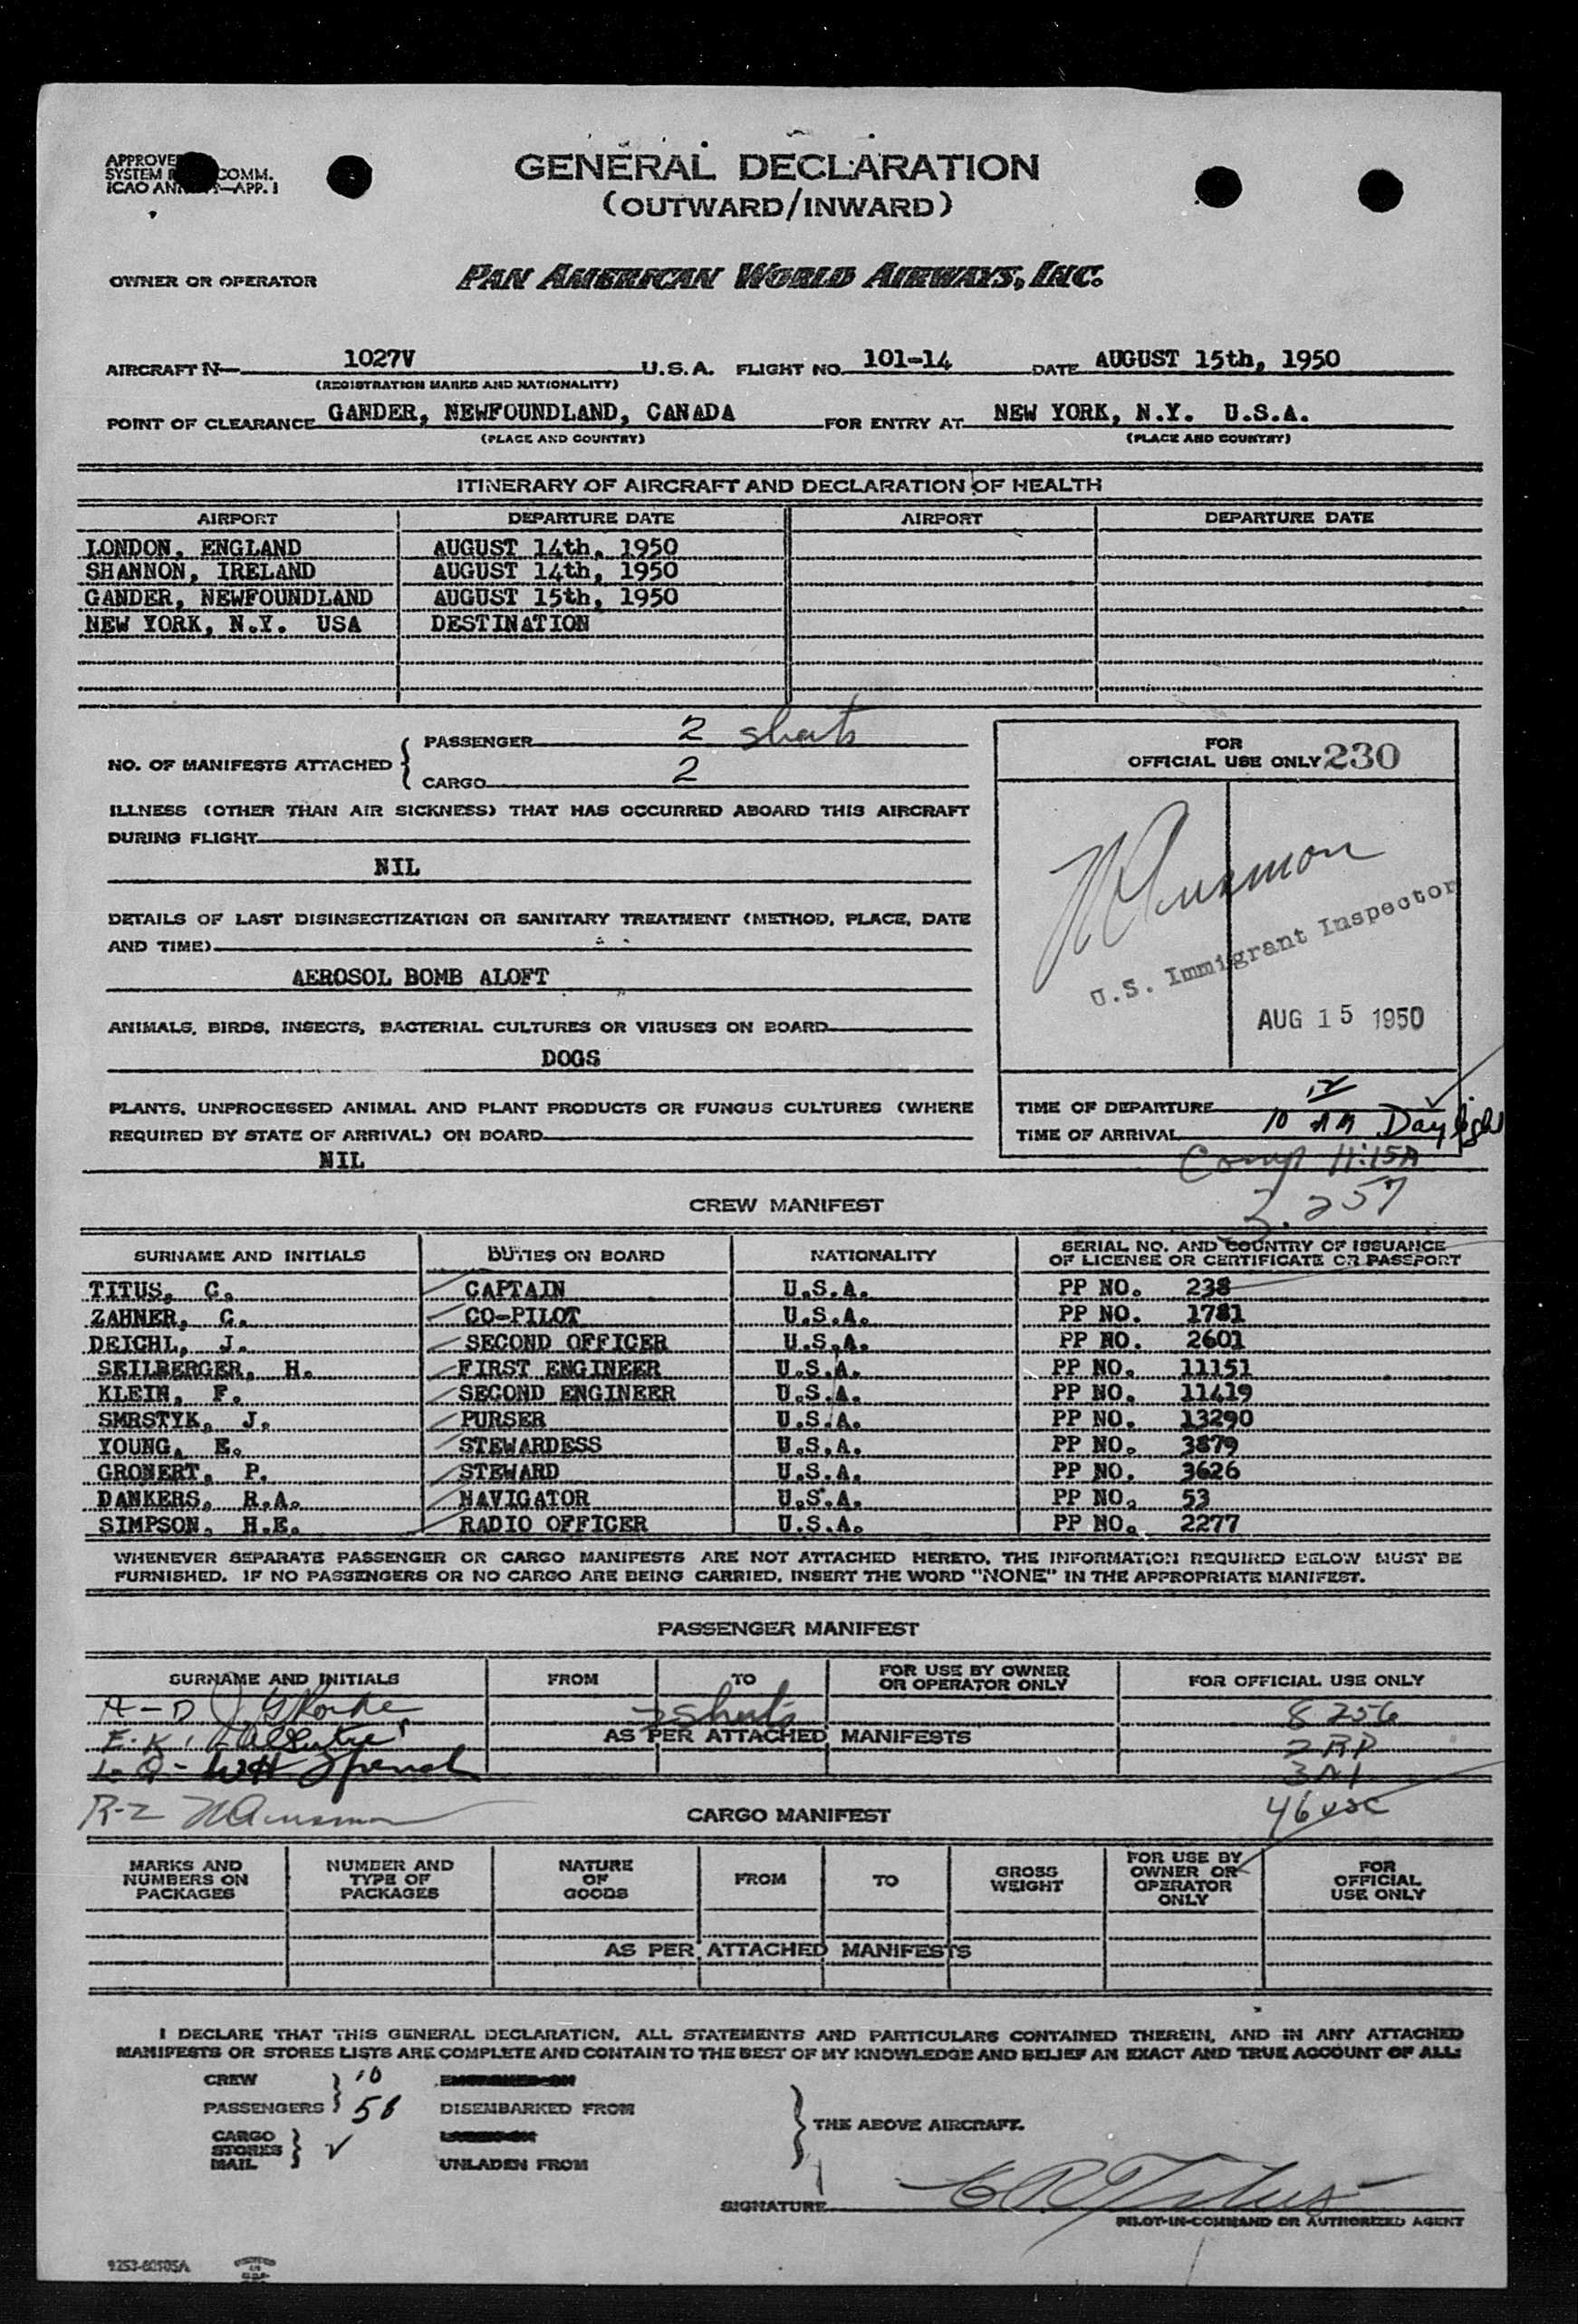 GENERAL DECLARATION
(OUTWARD/INWARD)
OWNER OR OPERATOR PAN AMERICAN WORLD AIRWAYS, INC.
AIRCRAFT N— 1027V U.S.A. FLIGHT NO. 101-14 DATE AUGUST 15th, 1950
(REGISTRATION MARKS AND NATIONALITY)
POINT OF CLEARANCE GANDER, NEWFOUNDLAND, CANADA FOR ENTRY AT NEW YORK, N.Y. U.S.A.
(PLACE AND COUNTRY) (PLACE AND COUNTRY)
ITINERARY OF AIRCRAFT AND DECLARATION OF HEALTH
AIRPORT DEPARTURE DATE AIRPORT DEPARTURE DATE
LONDON, ENGLAND AUGUST 14th, 1950
SHANNON, IRELAND AUGUST 14th, 1950
GANDER, NEWFOUNDLAND AUGUST 15th, 1950
NEW YORK, N.Y. USA DESTINATION
NO. OF MANIFESTS ATTACHED
PASSENGER 2 sheets
CARGO 2
ILLNESS (OTHER THAN AIR SICKNESS) THAT HAS OCCURRED ABOARD THIS AIRCRAFT
DURING FLIGHT
NIL
DETAILS OF LAST DISINSECTIZATION OR SANITARY TREATMENT (METHOD, PLACE, DATE
AND TIME)
AEROSOL BOMB ALOFT
ANIMALS, BIRDS, INSECTS, BACTERIAL CULTURES OR VIRUSES ON BOARD
DOGS
PLANTS, UNPROCESSED ANIMAL AND PLANT PRODUCTS OR FUNGUS CULTURES (WHERE
REQUIRED BY STATE OF ARRIVAL) ON BOARD
NIL
FOR
OFFICIAL USE ONLY 230
U.S. Immigrant Inspector
AUG 15 1950
TIME OF DEPARTURE
TIME OF ARRIVAL 10 AM Daylight
Comp 11:15A
CREW MANIFEST
SURNAME AND INITIALS DUTIES ON BOARD NATIONALITY SERIAL NO. AND COUNTRY OF ISSUANCE
OF LICENSE OR CERTIFICATE OR PASSPORT
TITUS, C. CAPTAIN U.S.A. PP NO. 238
ZAHNER, C. CO-PILOT U.S.A. PP NO. 1781
DEICHL, J. SECOND OFFICER U.S.A. PP NO. 2601
SEILBERGER, H. FIRST ENGINEER U.S.A. PP NO. 11151
KLEIN, F. SECOND ENGINEER U.S.A. PP NO. 11419
SMRSTYK, J. PURSER U.S.A. PP NO. 13290
YOUNG, E. STEWARDESS U.S.A. PP NO. 3879
GRONERT, P. STEWARD U.S.A. PP NO. 3626
DANKERS, R.A. NAVIGATOR U.S.A. PP NO. 53
SIMPSON, H.E. RADIO OFFICER U.S.A. PP NO. 2277
WHENEVER SEPARATE PASSENGER OR CARGO MANIFESTS ARE NOT ATTACHED HERETO, THE INFORMATION REQUIRED BELOW MUST BE
FURNISHED. IF NO PASSENGERS OR NO CARGO ARE BEING CARRIED, INSERT THE WORD "NONE" IN THE APPROPRIATE MANIFEST.
PASSENGER MANIFEST
SURNAME AND INITIALS FROM TO FOR USE BY OWNER
OR OPERATOR ONLY FOR OFFICIAL USE ONLY
A-D
AS PER ATTACHED MANIFESTS
R-Z
46 USC
CARGO MANIFEST
MARKS AND
NUMBERS ON
PACKAGES
NUMBER AND
TYPE OF
PACKAGES
NATURE
OF
GOODS
FROM
TO
GROSS
WEIGHT
FOR USE BY
OWNER OR
OPERATOR
ONLY
FOR
OFFICIAL
USE ONLY
AS PER ATTACHED MANIFESTS
I DECLARE THAT THIS GENERAL DECLARATION, ALL STATEMENTS AND PARTICULARS CONTAINED THEREIN, AND IN ANY ATTACHED
MANIFESTS OR STORES LISTS ARE COMPLETE AND CONTAIN TO THE BEST OF MY KNOWLEDGE AND BELIEF AN EXACT AND TRUE ACCOUNT OF ALL:
CREW 10
PASSENGERS 58 DISEMBARKED FROM
THE ABOVE AIRCRAFT.
CARGO
STORES
MAIL UNLADEN FROM
SIGNATURE C R Titus
PILOT-IN-COMMAND OR AUTHORIZED AGENT